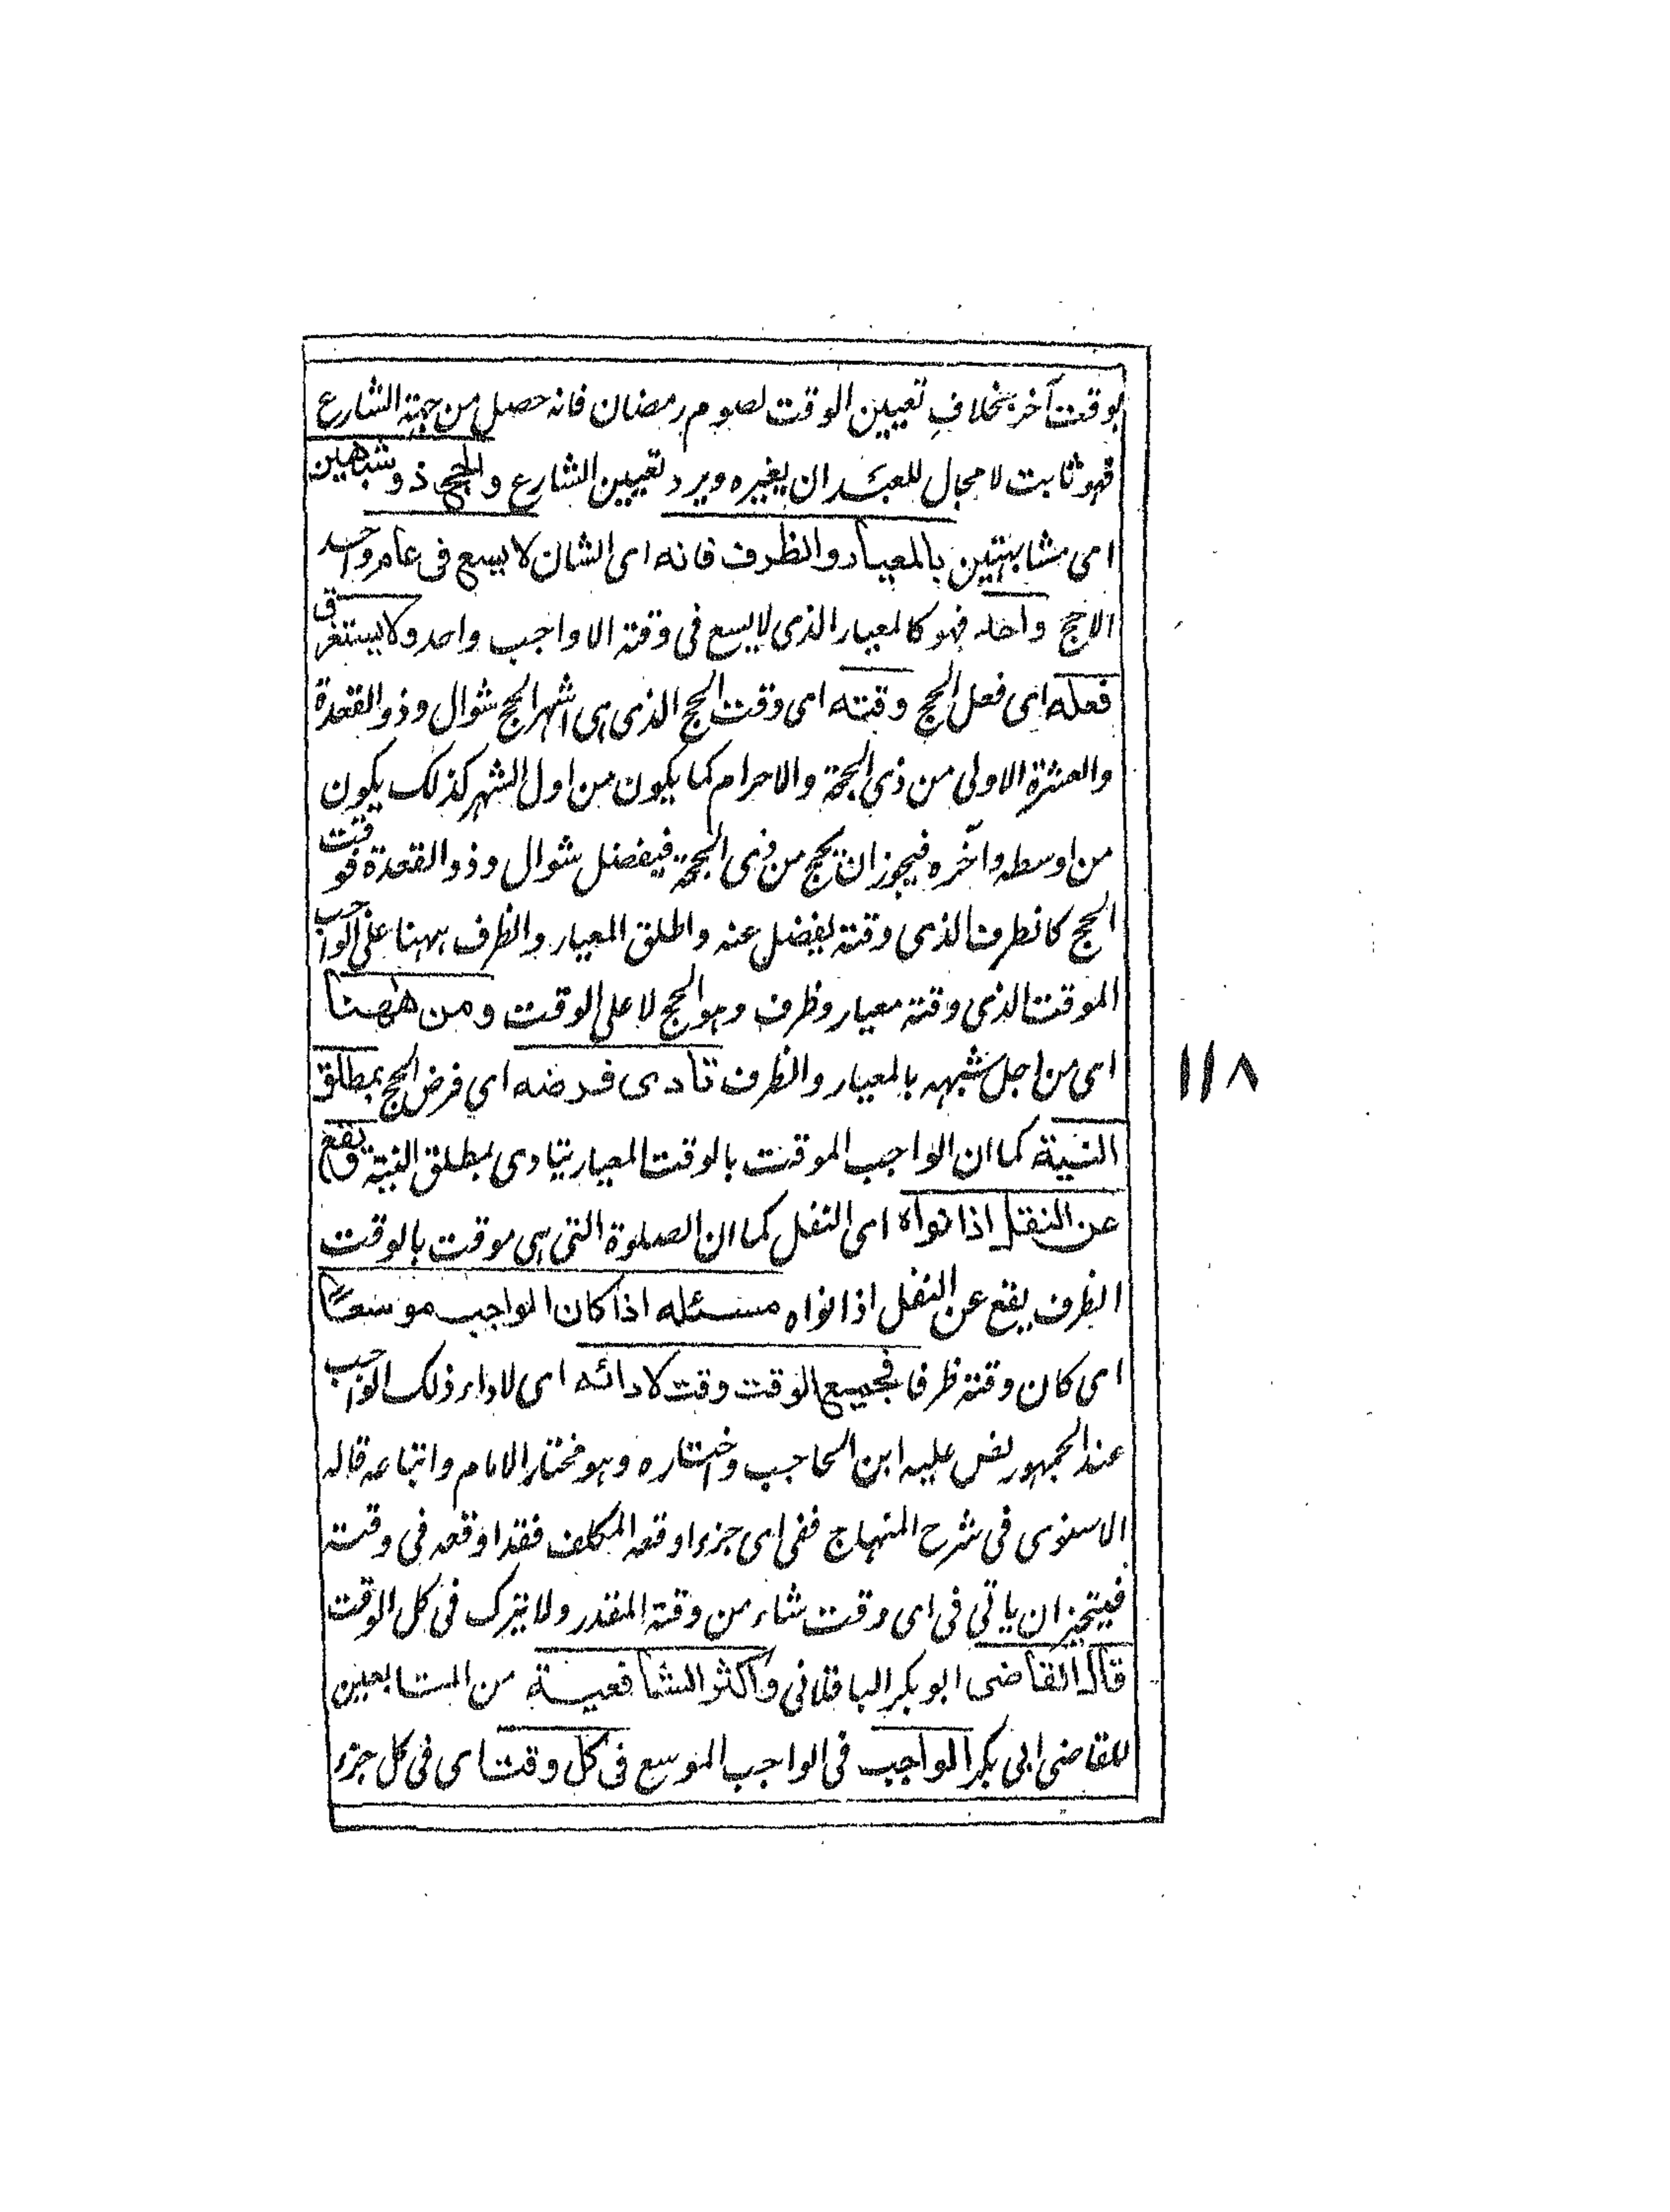 بوقت آخر بخلافِ تعيين الوقت لصوم رمضان فانه حصل من جهة الشارع
فهو ثابت لا مجال للعبد ان يغيره ويرد تعيين الشارع والحج ذو شبهين
اى مشابهتين بالمعيار والظرف فانه اى الشان لا يسع فى عام واحد
الا حج واحد فهو كالمعيار الذى لا يسع فى وقته الا واجب واحد ولا يستغرق
فعله اى فعل الحج وقته اى وقت الحج الذى هى اشهر الحج شوال وذو القعدة
والعشرة الاولى من ذى الحجة والاحرام كما يكون من اول الشهر كذلك يكون
من اوسطه وآخره فيجوز ان يحج من ذى الحجة فيفضل شوال وذو القعدة فوقت
الحج كالظرف الذى وقته يفضل عنه واطلق المعيار والظرف ههنا على الواجب
الموقت الذى وقته معيار وظرف وهو الحج لا على الوقت ومن ههنا
اى من اجل شبهه بالمعيار والظرف تادى فرضه اى فرض الحج بمطلق
النية كما ان الواجب الموقت بالوقت المعيار يتادى بمطلق النية ويقع
عن النفل اذا نواه اى النفل كما ان الصلوة التى هى موقت بالوقت
الظرف يقع عن النفل اذا نواه مسئله اذا كان الواجب موسعًا
اى كان وقته ظرفا فجميع الوقت وقت لادائه اى لاداء ذلك الواجب
عند الجمهور نص عليه ابن الحاجب واختاره وهو مختار الامام واتباعه قاله
الاسنوى فى شرح المنهاج ففى اى جزء اوقعه المكلف فقد اوقعه فى وقته
فيتخير ان ياتى فى اى وقت شاء من وقته المقدر ولا يترك فى كل الوقت
قال القاضى ابو بكر الباقلانى واكثر الشافعية من المتابعين
للقاضى ابى بكر الواجب فى الواجب الموسع فى كل وقت اى فى كل جزء
١١٨